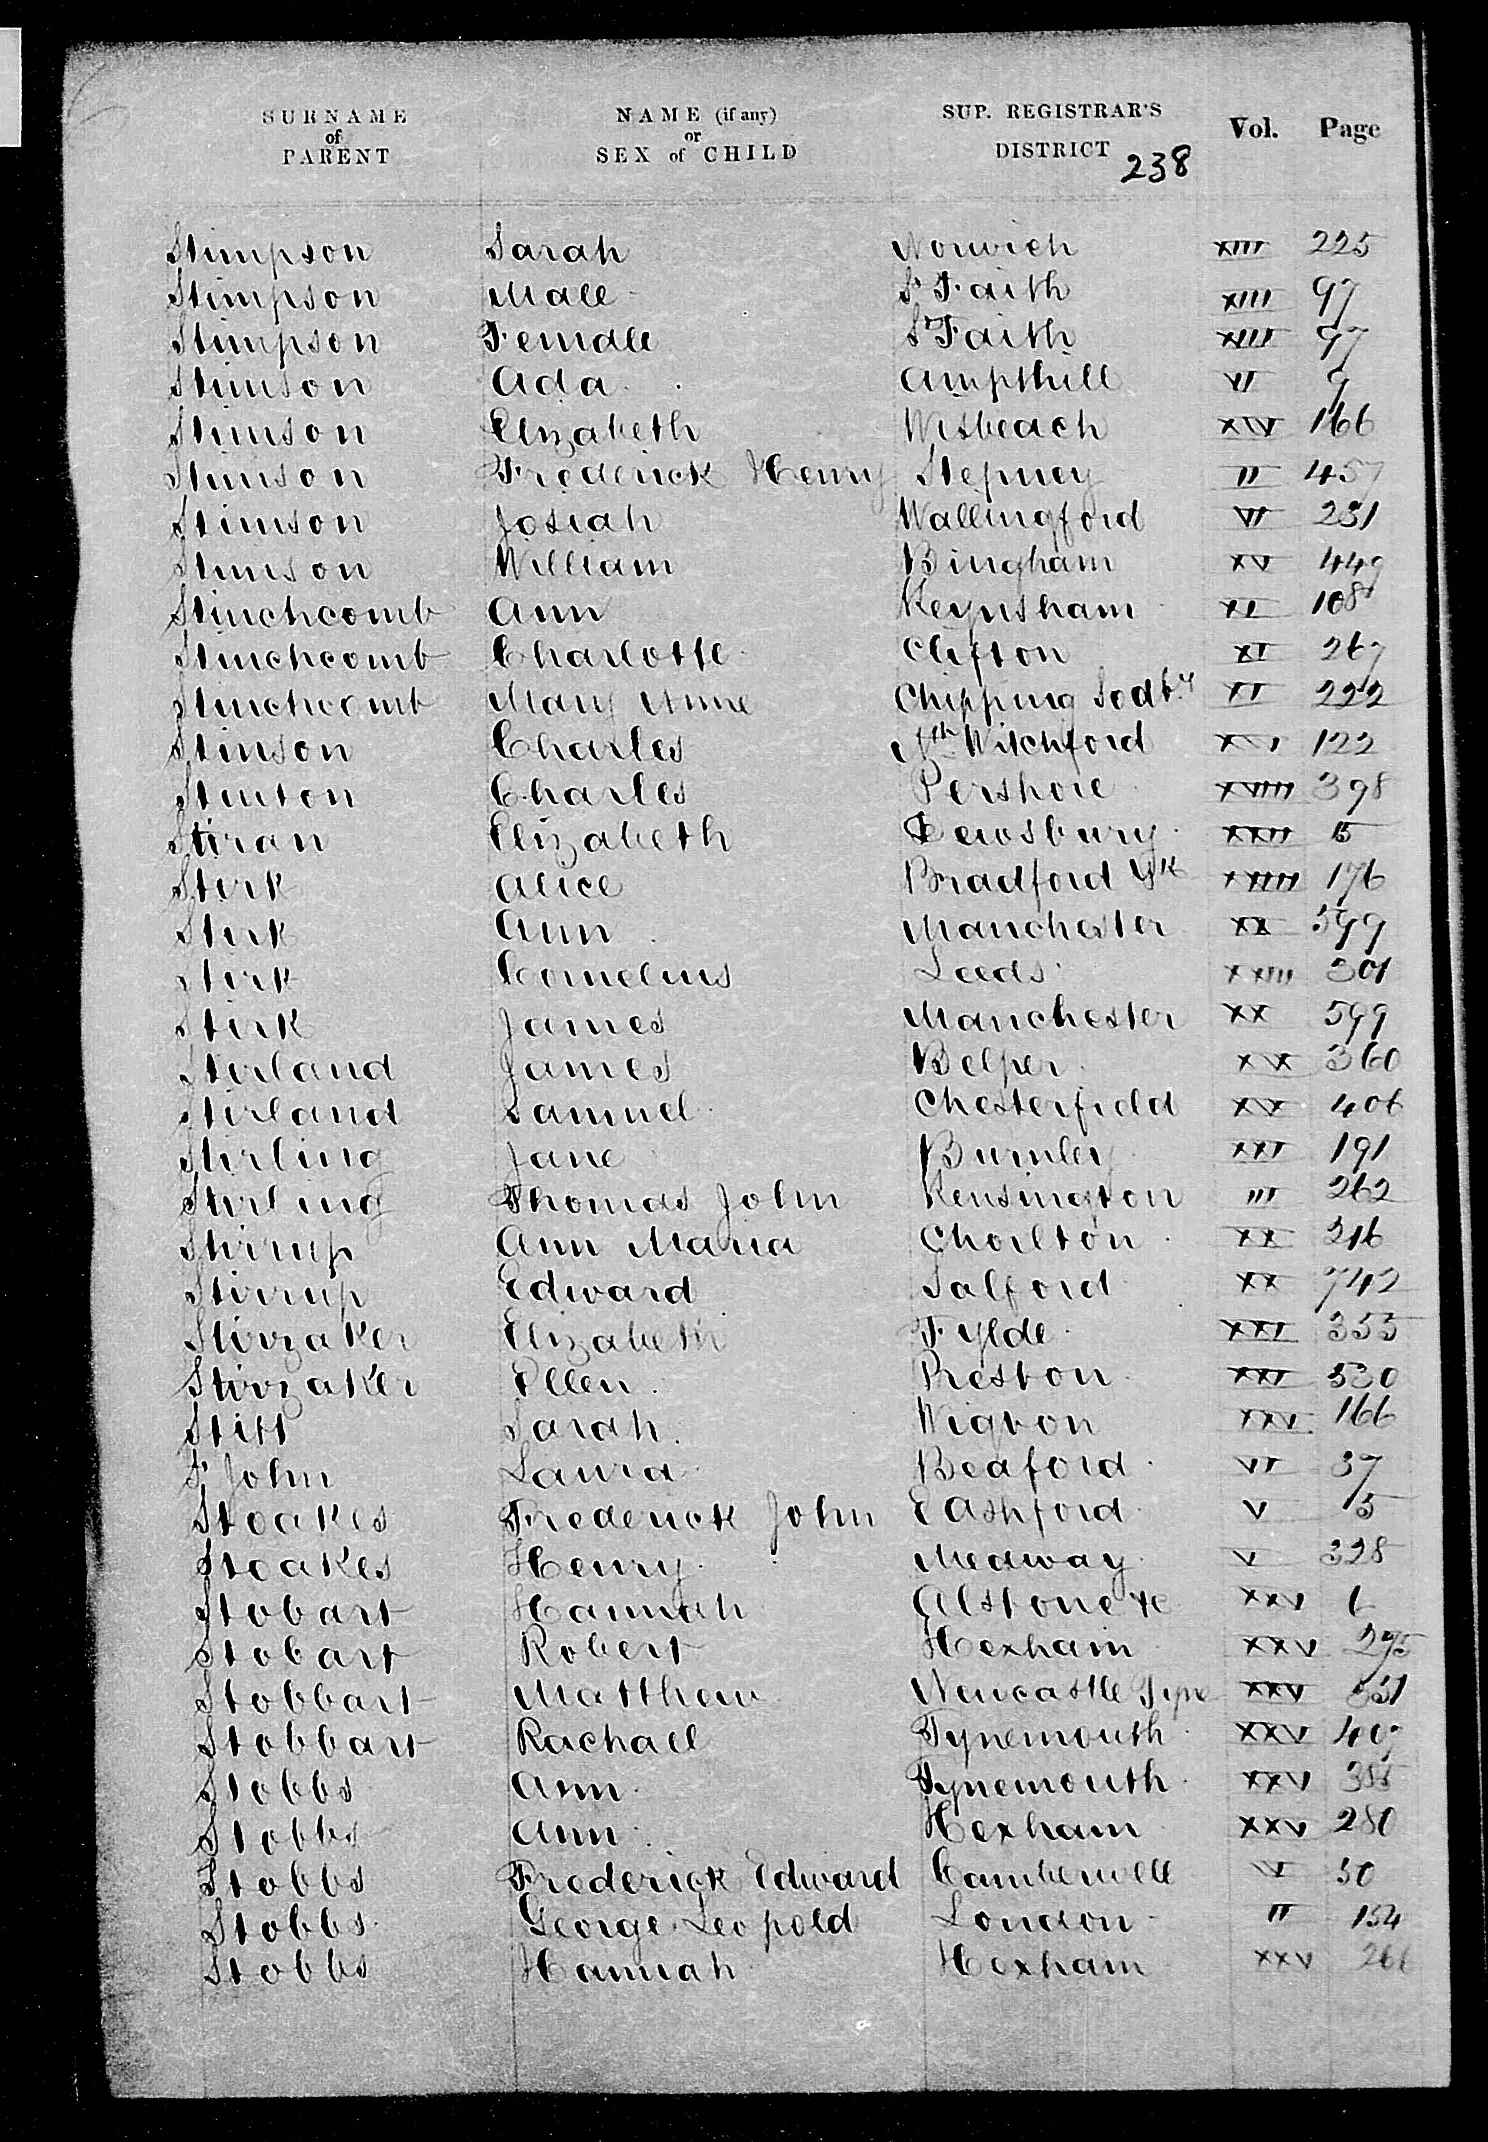 SURNAME of PARENT NAME (if any) or SEX of CHILD SUP. REGISTRAR'S DISTRICT Vol. Page
238
Stimpson Sarah Norwich XIII 225
Stimpson Male St Faith XIII 97
Stimpson Female St Faith XIII 97
Stimson Ada Ampthill VI 9
Stimson Elizabeth Wisbeach XIV 166
Stimson Frederick Henry Stepney II 457
Stimson Josiah Wallingford VI 231
Stimson William Bingham XV 449
Stinchcomb Ann Keynsham XI 108
Stinchcomb Charlotte Clifton XI 267
Stinchcomb Mary Anne Chipping Sodby XI 222
Stinson Charles Nth Witchford 122
Stinton Charles Pershore XVIII 398
Stiran Elizabeth Dewsbury XXII 15
Stirk Alice Bradford Yk XXIII 176
Stirk Ann Manchester XX 599
Stirk Cornelius Leeds XXIII 301
Stirk James Manchester XX 599
Stirland James Belper XIX 360
Stirland Samuel Chesterfield XIX 406
Stirling Jane Burnley XXI 191
Stirling Thomas John Kensington III 262
Stirrup Ann Maria Chorlton XX 216
Stirrup Edward Salford XX 742
Stirzaker Elizabeth Fylde XXI 353
Stirzaker Ellen Preston XXI 530
Stitt Sarah Wigton XXV 166
St John Laura Bedford VI 37
Stoakes Frederick John E Ashford V 15
Stoakes Henry Medway V 328
Stobart Hannah Alstone &c XXV 6
Stobart Robert Hexham XXV 295
Stobbart Matthew Newcastle Tyne XXV
Stobbart Rachael Tynemouth XXV
Stobbs Ann Tynemouth XXV
Stobbs Ann Hexham XXV 280
Stobbs Frederick Edward Camberwell 50
Stobbs George Leopold London II 154
Stobbs Hannah Hexham XXV